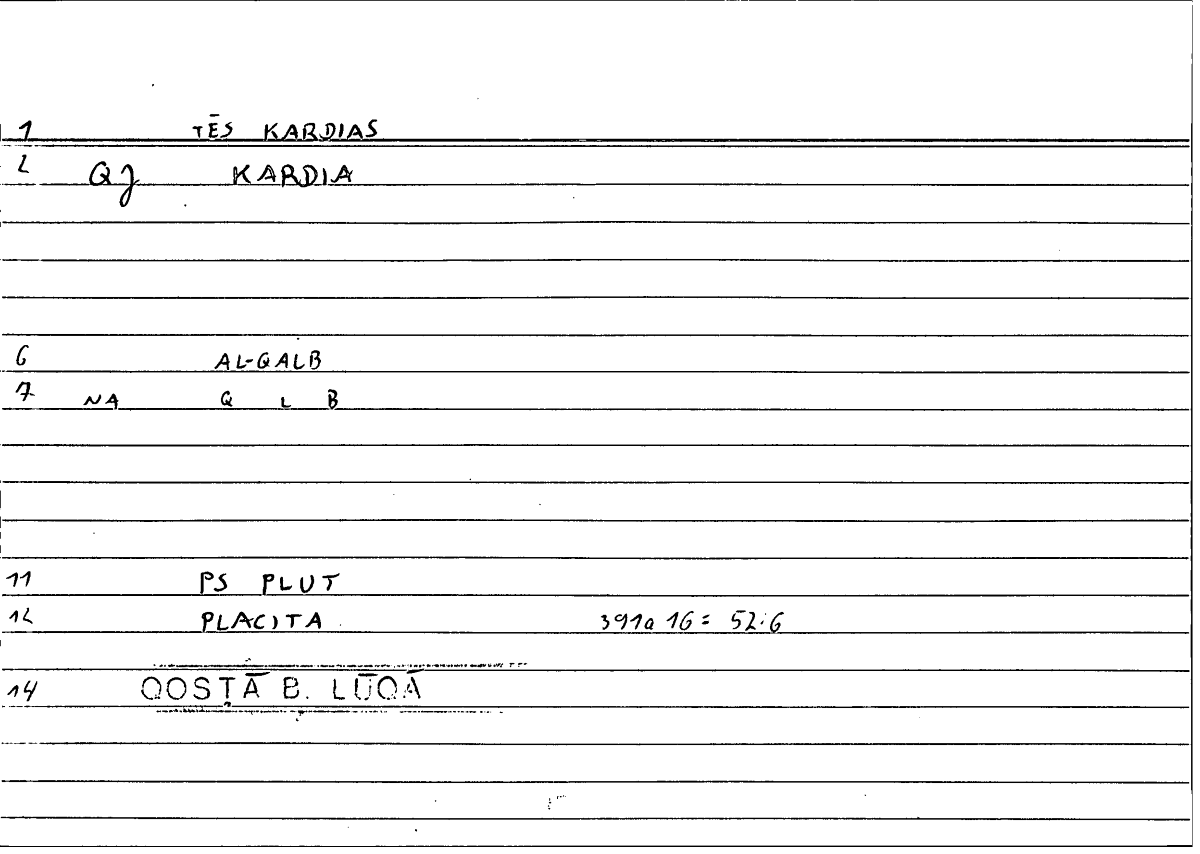 1 TĒS KARDIAS
2 QJ KARDIA
6 AL-QALB
7 NA Q L B
11 PS PLUT
12 PLACITA 391a 16 = 52:6
14 QOSṬĀ B. LŪQĀ